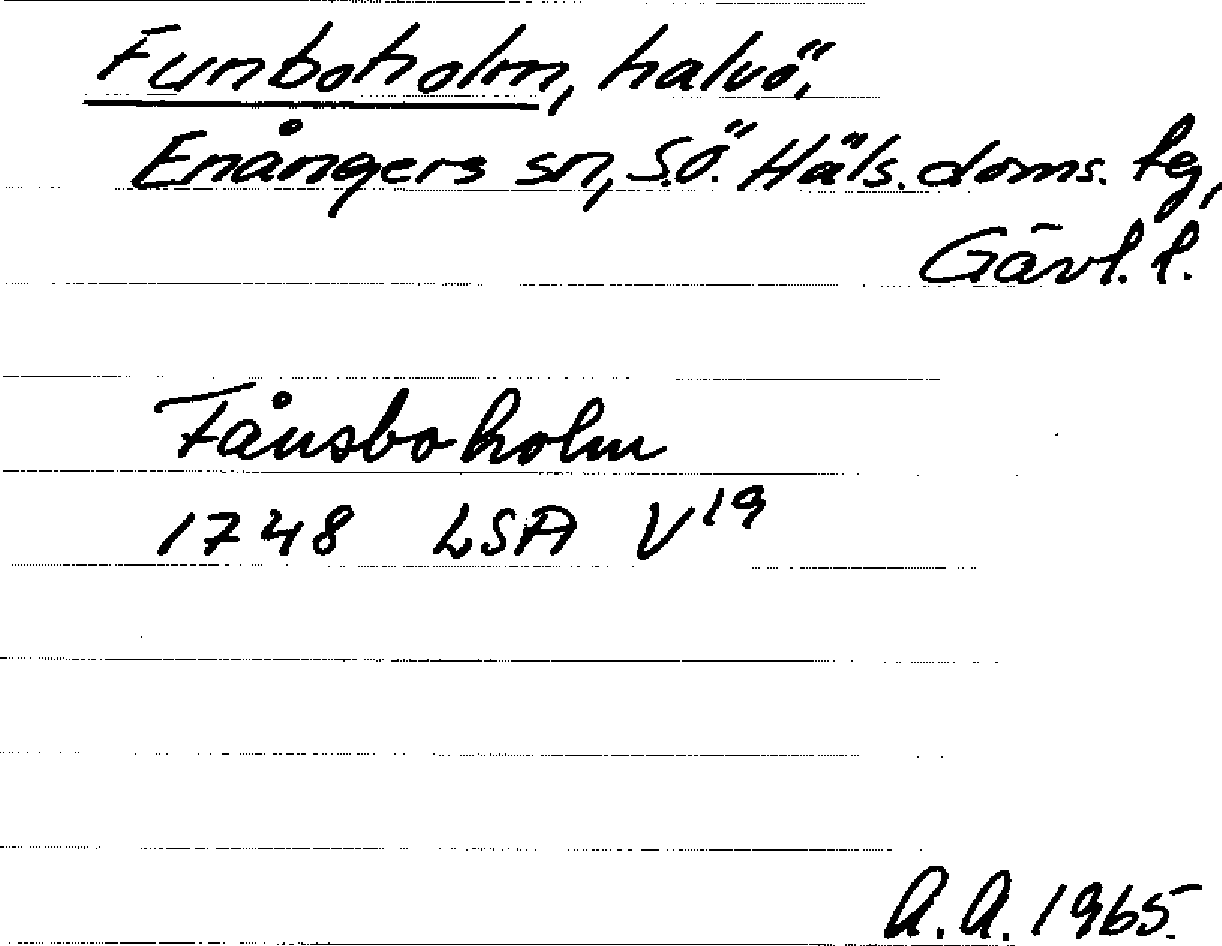 Funboholm, halvö,
Enångers sn, S.Ö. Häls. doms. tg,
Gävl. l.
Fånsboholm
1748 LSA V19
A.A. 1965.